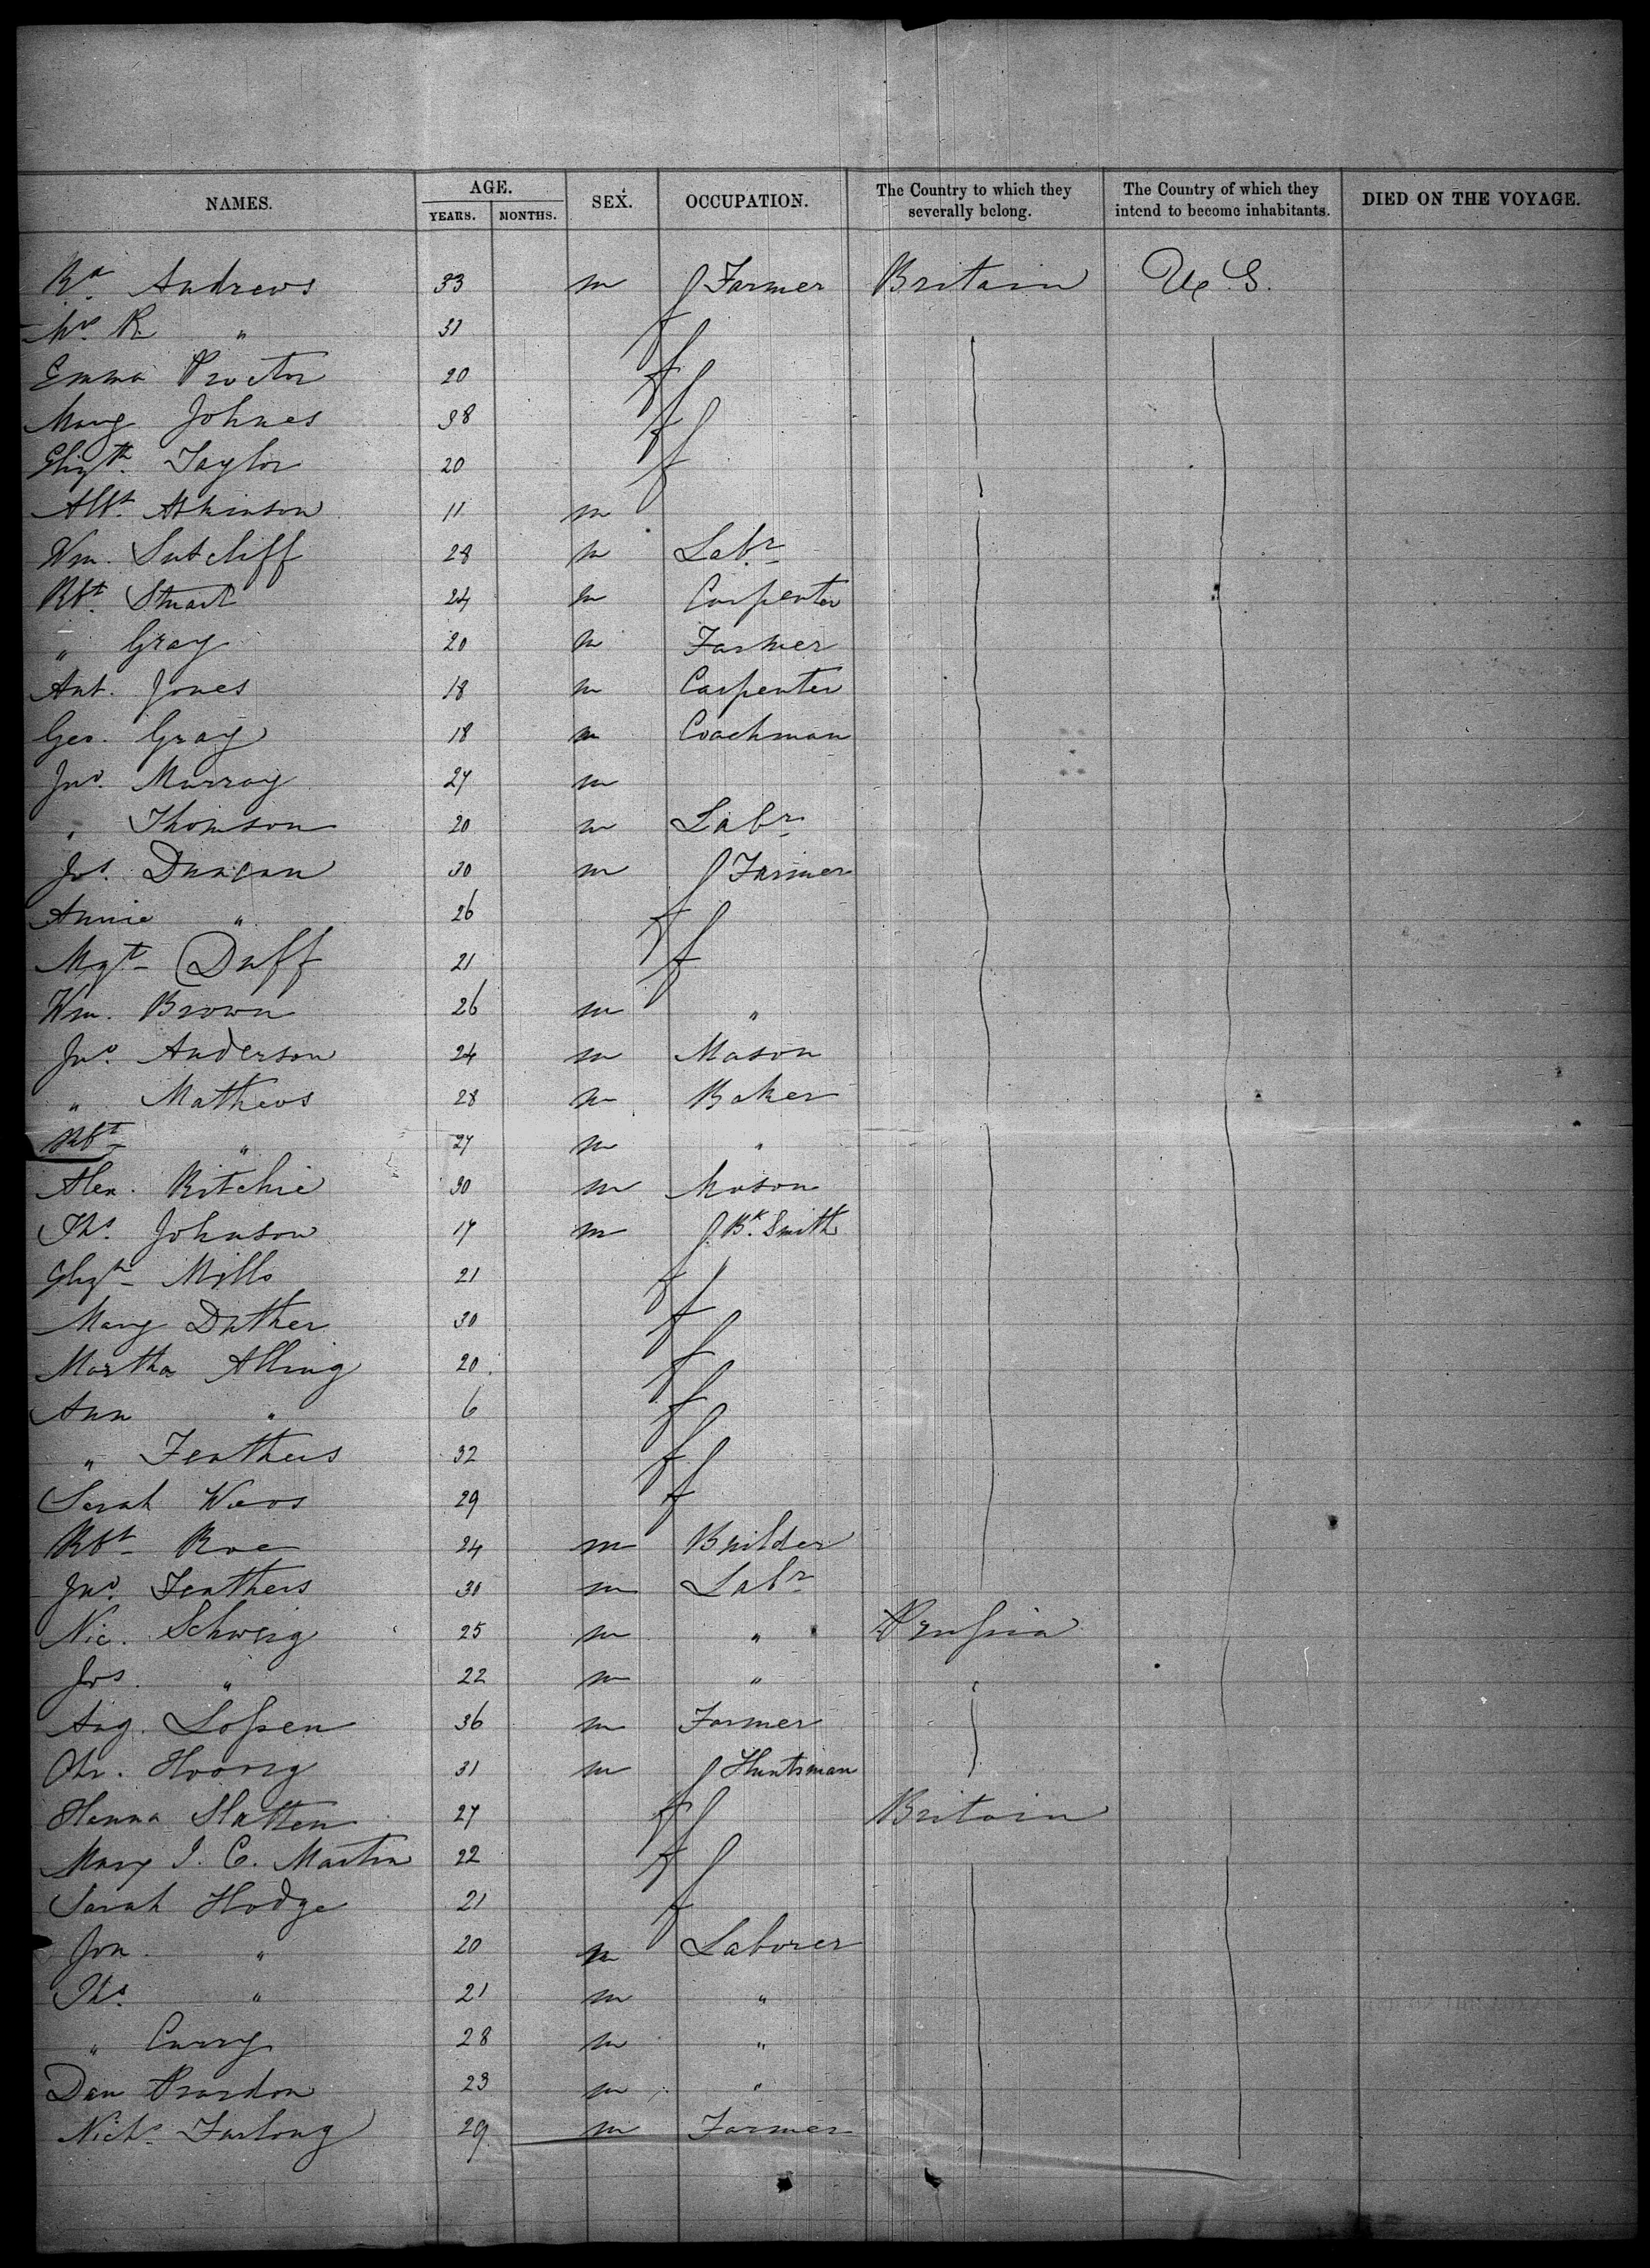 NAMES. AGE. SEX. OCCUPATION. The Country to which they severally belong. The Country of which they intend to become inhabitants. DIED ON THE VOYAGE.
YEARS. MONTHS.
Rd. Andrews 33 m Farmer Britain U. S.
Mrs. R. " 31 f
Emma Proctor 20 f
Mary Johnes 38 f
Elizth. Taylor 20 f
Albt. Atkinson 11 m
Wm. Sutcliff 28 m Labr.
Rbt. Stuart 24 m Carpenter
" Gray 20 m Farmer
Ant. Jones 18 m Carpenter
Geo. Gray 18 m Coachman
Jno. Murray 27 m
" Thomson 20 m Labr.
Jas. Duncan 30 m Farmer
Annie " 26 f
Mgt. Duff 21 f
Wm. Brown 26 m "
Jno. Anderson 24 m Mason
" Mathews 28 m Baker
Rbt. " 27 m "
Alex. Ritchie 30 m Mason
Ths. Johnson 17 m Bk. Smith
Elizth. Mills 21 f
Mary Duther 30 f
Martha Alling 20 f
Ann " 6 f
" Feathers 32 f
Sarah 29 f
Rbt. Roe 24 m Builder
Jno. Feathers 30 m Labr.
Nic. Schweig 25 m " Prussia
Jos. " 22 m "
Aug. Lossen 36 m Farmer
Chr. 31 m Huntsman
Hanna Slatten 27 f Britain
Mary J. C. Martin 22 f
Sarah Hodge 21 f
Jon. " 20 m Laborer
Ths. " 21 m "
" Curry 28 m "
Dan 23 m "
Nichs. Furlong 29 m Farmer